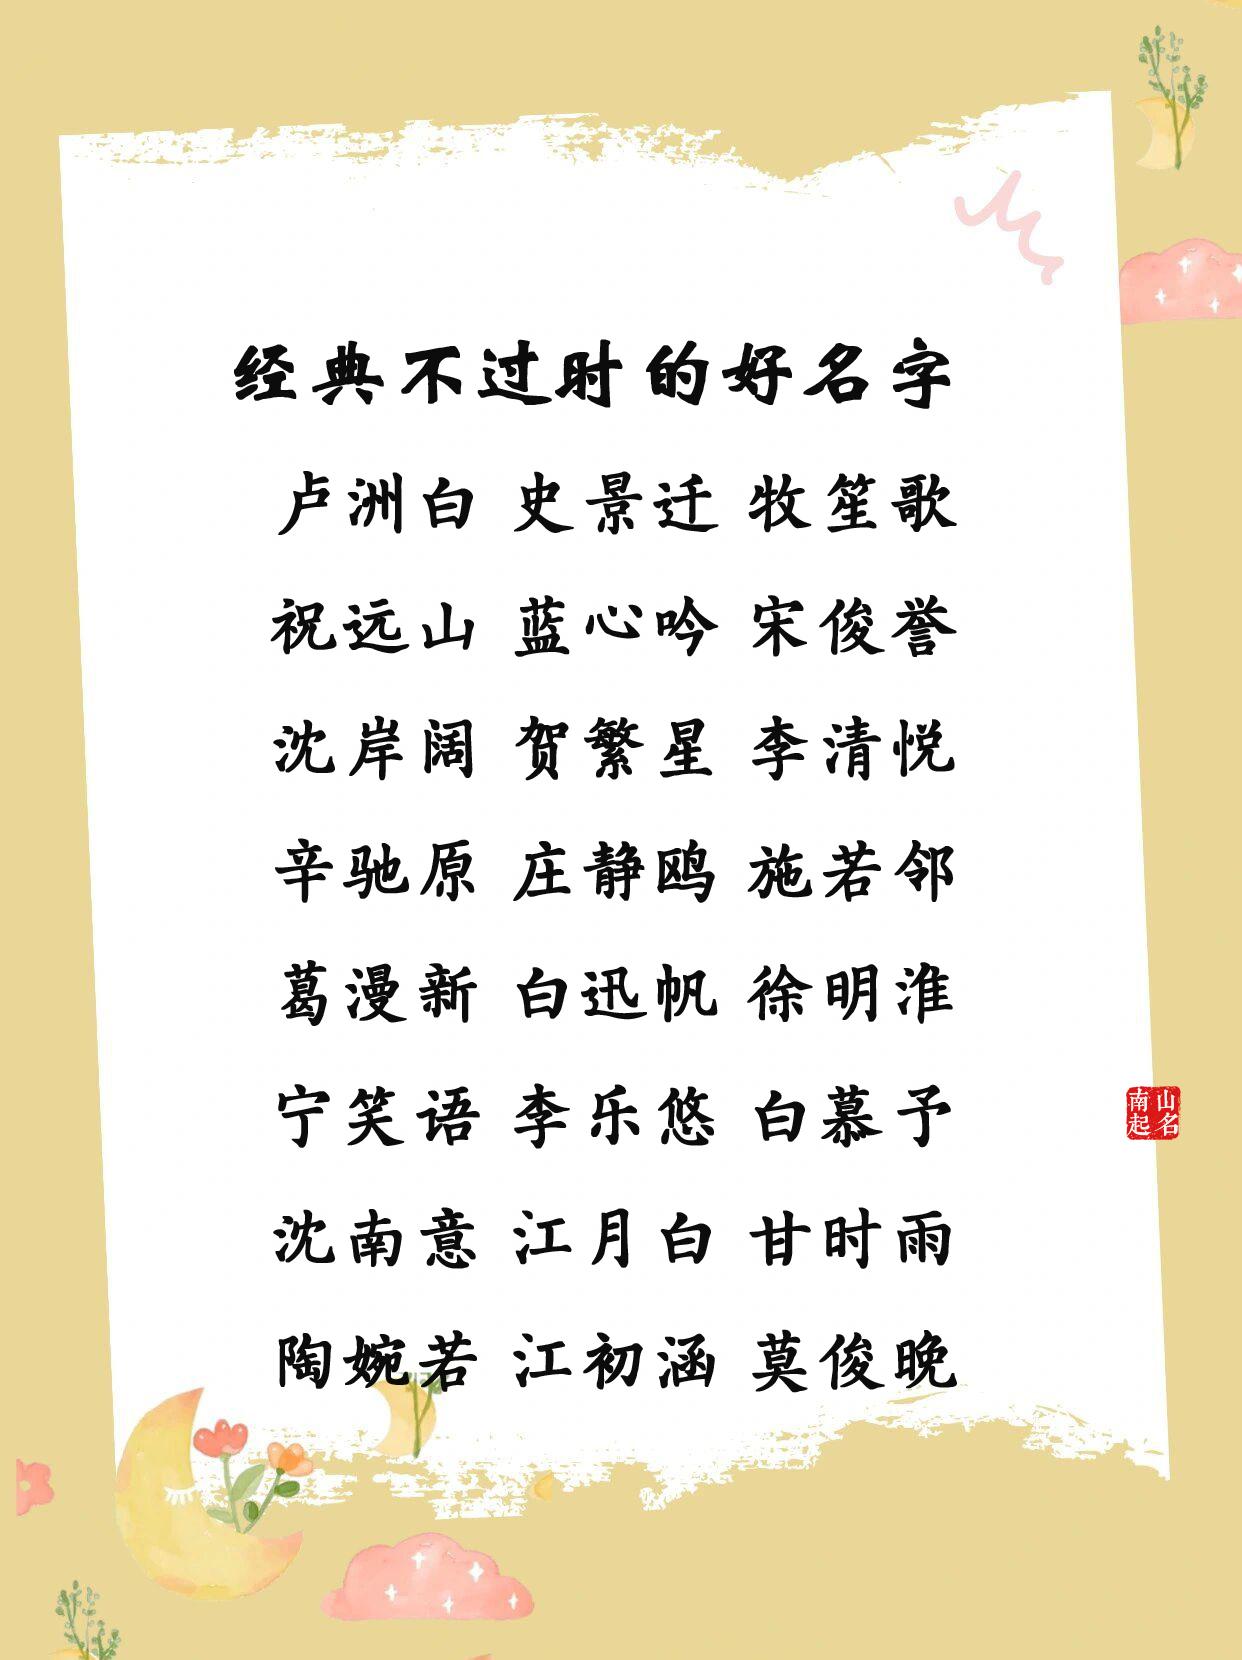 经典不过时的好名字
卢洲白 史景迁 牧笙歌
祝远山 蓝心吟 宋俊誉
沈岸阔 贺繁星 李清悦
辛驰原 庄静鸥 施若邻
葛漫新 白迅帆 徐明淮
宁笑语 李乐悠 白慕予
沈南意 江月白 甘时雨
陶婉若 江初涵 莫俊晚
山名
南起